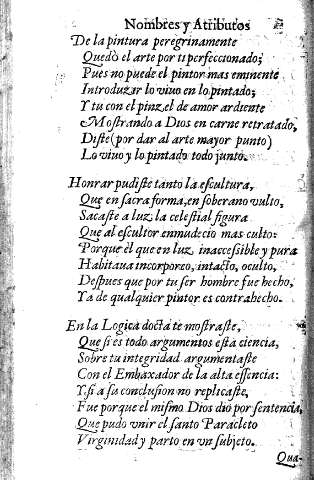 Nombres y Atributos
De la pintura peregrinamente
Quedò el arte por ti perfeccionado;
Pues no puede el pintor mas eminente
Introduzir lo viuo en lo pintado;
Y tu con el pinzel de amor ardiente
Mostrando a Dios en carne retratado,
Diste (por dar al arte mayor punto)
Lo viuo y lo pintado todo junto.
Honrar pudiste tanto la escultura,
Que en sacra forma, en soberano vulto,
Sacaste a luz la celestial figura
Que al escultor enmudecio mas culto:
Porque el que en luz inaccessible y pura
Habitaua incorporeo, intacto, oculto,
Despues que por tu ser hombre fue hecho,
Ya de qualquier pintor es contrahecho.
En la Logica docta te mostraste,
Que si es todo argumentos esta ciencia,
Sobre tu integridad argumentaste
Con el Embaxador de la alta essencia:
Y si a su conclusion no replicaste,
Fue porque el mismo Dios dio por sentencia,
Que pudo vnir el santo Paracleto
Virginidad y parto en vn subjeto.
Qua-